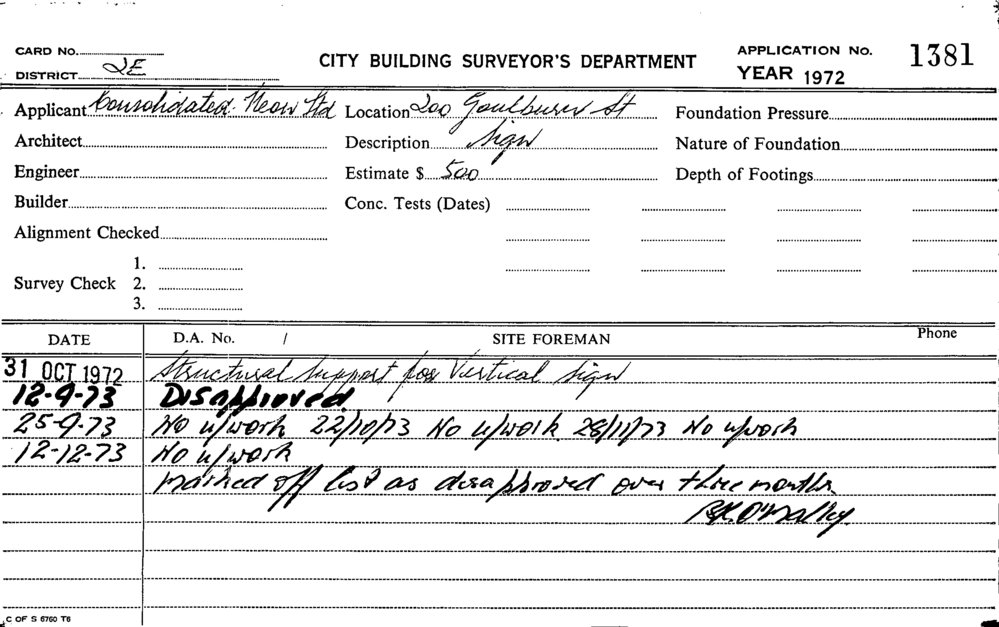 CARD No.
DISTRICT 2E
CITY BUILDING SURVEYOR'S DEPARTMENT
APPLICATION No. 1381
YEAR 1972
Applicant Consolidated Neon Ltd Location 200 Goulburn St Foundation Pressure
Architect Description Sign Nature of Foundation
Engineer Estimate $ 500 Depth of Footings
Builder Conc. Tests (Dates)
Alignment Checked
1.
Survey Check 2.
3.
DATE D.A. No. / SITE FOREMAN Phone
31 OCT 1972 Structural Support for Vertical Sign
12-9-73 Disapproved
25-9-73 No u/work 22/10/73 No u/work 28/11/73 No u/work
12-12-73 No u/work
marked off list as disapproved over three months.
R.K. O'Malley.
C OF S 6760 T6